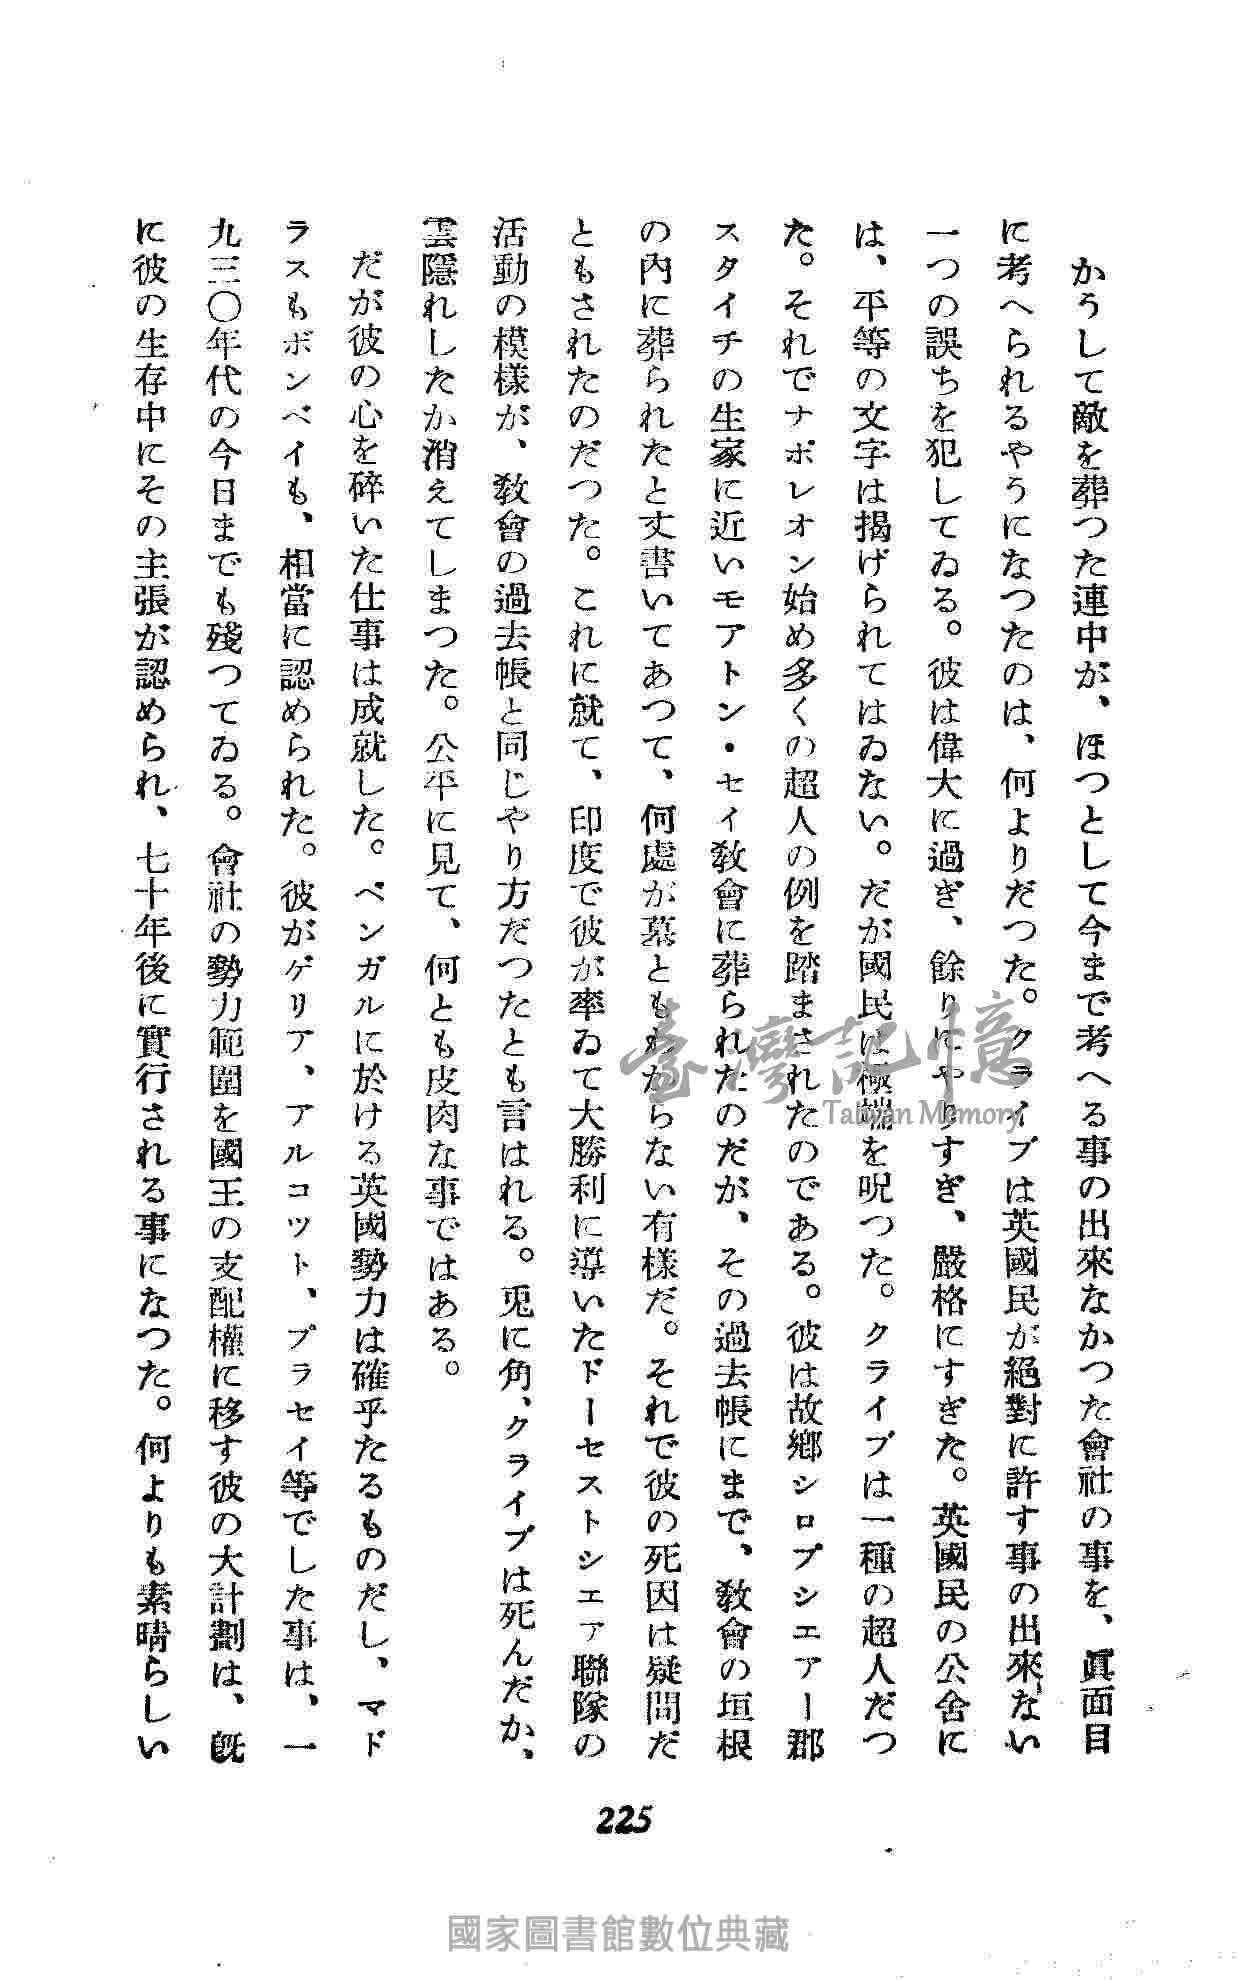 かうして敵を葬つた連中が、ほつとして今まで考へる事の出來なかつた會社の事を、眞面目
に考へられるやうになつたのは、何よりだつた。クライブは英國民が絕對に許す事の出來ない
一つの誤ちを犯してゐる。彼は偉大に過ぎ、餘りにやりすぎ、嚴格にすぎた。英國民の公舍に
は、平等の文字は揭げられてはゐない。だが國民は極端を呪つた。クライブは一種の超人だつ
た。それでナポレオン始め多くの超人の例を踏まされたのである。彼は故鄕シロプシエアー郡
スタイチの生家に近いモアトン・セイ敎會に葬られたのだが、その過去帳にまで、敎會の垣根
の內に葬られたと丈書いてあつて、何處が墓ともわからない有樣だ。それで彼の死因は疑問だ
ともされたのだつた。これに就て、印度で彼が率ゐて大勝利に導いたドーセストシエア聯隊の
活動の模樣が、敎會の過去帳と同じやり方だつたとも言はれる。兎に角、クライブは死んだか、
雲隱れしたか消えてしまつた。公平に見て、何とも皮肉な事ではある。
だが彼の心を碎いた仕事は成就した。ベンガルに於ける英國勢力は確乎たるものだし、マド
ラスもボンベイも、相當に認められた。彼がゲリア、アルコツト、プラセイ等でした事は、一
九三〇年代の今日までも殘つてゐる。會社の勢力範圍を國王の支配權に移す彼の大計劃は、旣
に彼の生存中にその主張が認められ、七十年後に實行される事になつた。何よりも素晴らしい
225
臺灣記憶
Taiwan Memory
國家圖書館數位典藏